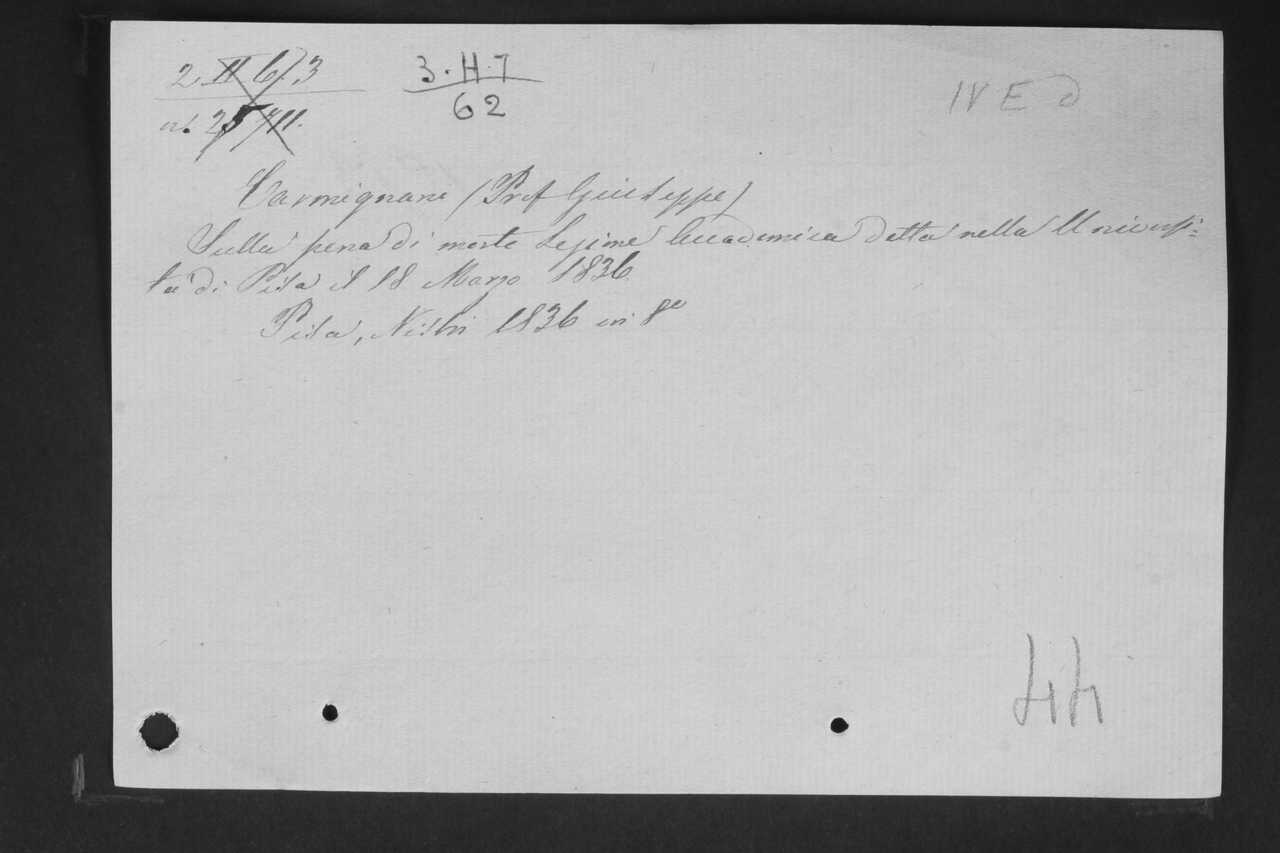 2. II 6.3
3.H.7
62
IV E d
Carmignani (Prof Giuseppe)
Sulla pena di morte Lezione Accademica detta nella Universi=
tà di Pisa il 18 Marzo 1836
Pisa, Nistri 1836 in 8°
44